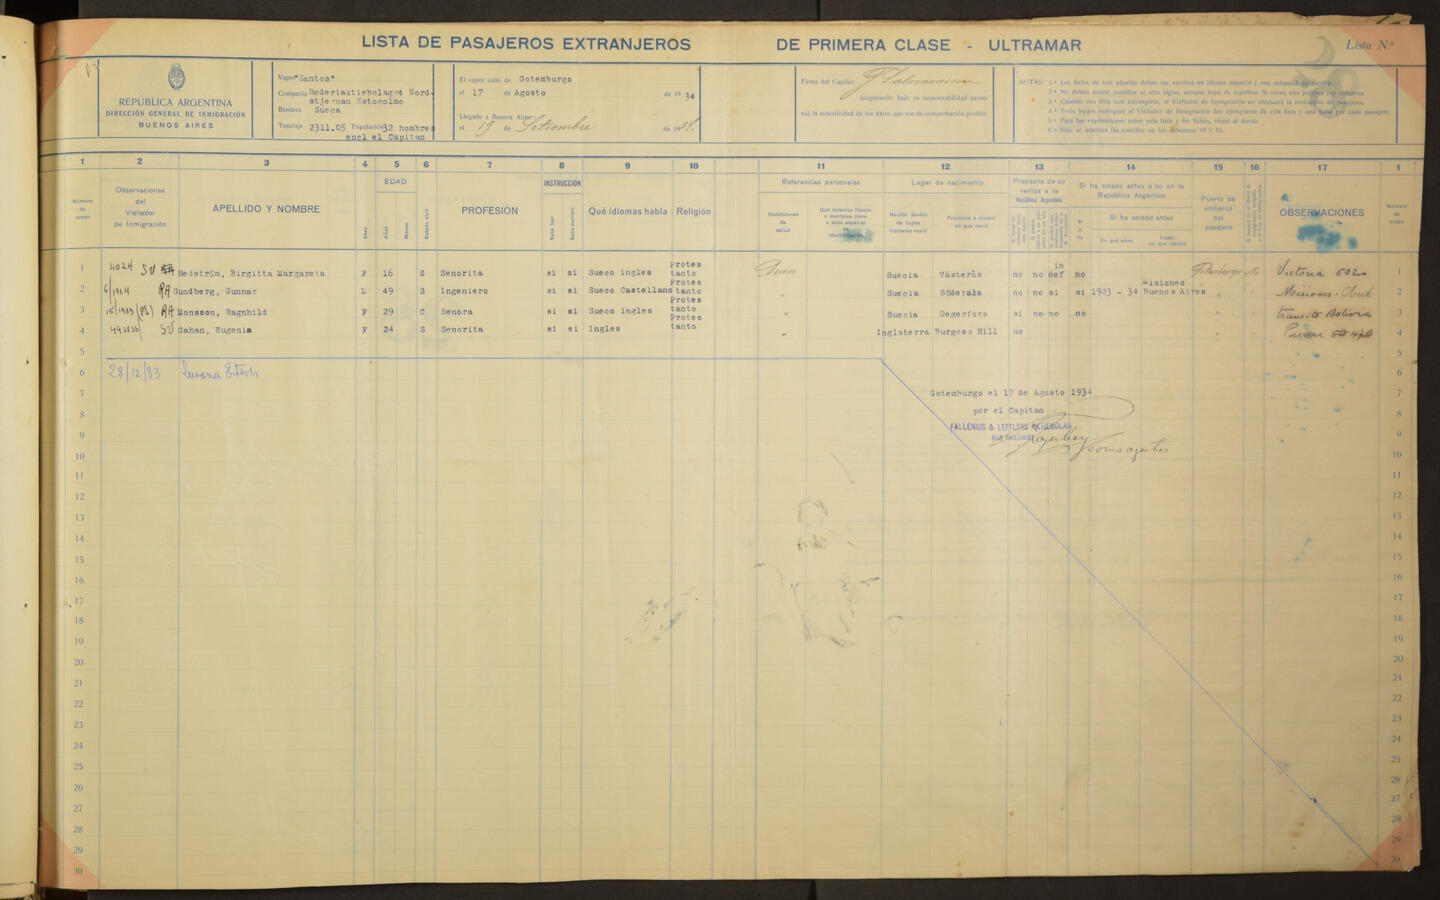 LISTA DE PASAJEROS EXTRANJEROS DE PRIMERA CLASE - ULTRAMAR
Lista N.º
REPUBLICA ARGENTINA
DIRECCIÓN GENERAL DE INMIGRACIÓN
BUENOS AIRES
Vapor "Santos"
Compañía Rederiaktiebolaget Nord-
stjernan Estocolmo
Bandera Sueca
Tonelaje 2311.05 Tripulación 32 hombres
encl el Capitan
El vapor salió de Gotemburgo
el 17 de Agosto de 1934
Llegado a Buenos Aires
el 19 de Setiembre de 1934.
Firma del Capitán
asegurando bajo su responsabilidad perso-
nal, la autenticidad de los datos que son de comprobación posible
NOTAS: 1.ª Los datos de esta planilla deben ser escritos en idioma español y con máquina de escribir.
2.ª No deben usarse comillas ni otro signo, aunque haya de repetirse 30 veces una palabra por columna
3.ª Cuando una lista esté incompleta, el Visitador de Inmigración no efectuará la revisación de pasajeros.
4.ª Todo buque entregará al Visitador de Inmigración dos ejemplares de esta lista y una ficha por cada pasajero.
5.ª Para las explicaciones sobre esta lista y las fichas, véase al dorso.
6.ª Sólo se admiten las comillas en las columnas 10 y 15.
1 2 3 4 5 6 7 8 9 10 11 12 13 14 15 16 17 1
Número de orden
Observaciones del Visitador de Inmigración
APELLIDO Y NOMBRE
Sexo
EDAD
Años
Meses
Estado civil
PROFESIÓN
INSTRUCCIÓN
Sabe leer
Sabe escribir
Qué idiomas habla
Religión
Referencias personales
Condiciones de salud
Qué defectos físicos o mentales tiene o seña especial de identificación
Lugar de nacimiento
Nación dentro de cuyas fronteras nació
Provincia o ciudad en que nació
Propósito de su venida a la República Argentina
Si ha estado antes o no en la República Argentina
Si ó no
Si ha estado antes
En qué años
Lugar en que residió
Puerto de embarco del pasajero
OBSERVACIONES
Número de orden
1 4024 SV Hedström, Birgitta Margareta F 16 S Senorita si si Sueco ingles Protes tanto Buena Suecia Västerås no no in def no No Victoria 502 1
2 RA Sundberg, Gunnar M 49 S Ingeniero si si Sueco Castellano Protes tanto " Suecia Söderala no no si si 1923 - 34 Misiones Buenos Aires " " Misiones - 2
3 RA Monsson, Ragnhild F 29 C Senora si si Sueco ingles Protes tanto " Suecia Degerfors si no no no " " transito Bolivia 3
4 SV Gahan, Eugenia F 24 S Senorita si si Ingles Protes tanto " Inglaterra Burgess Hill no " " 4
5 5
6 28/12/83 Susana Esteves 6
7 Gotemburgo el 17 de Agosto 1934 7
8 por el Capitan 8
FALLENIUS & LEFFLERS AKTIEBOLAG
9 9
10 como agentes 10
11 11
12 12
13 13
14 14
15 15
16 16
17 17
18 18
19 19
20 20
21 21
22 22
23 23
24 24
25 25
26 26
27 27
28 28
29 29
30 30